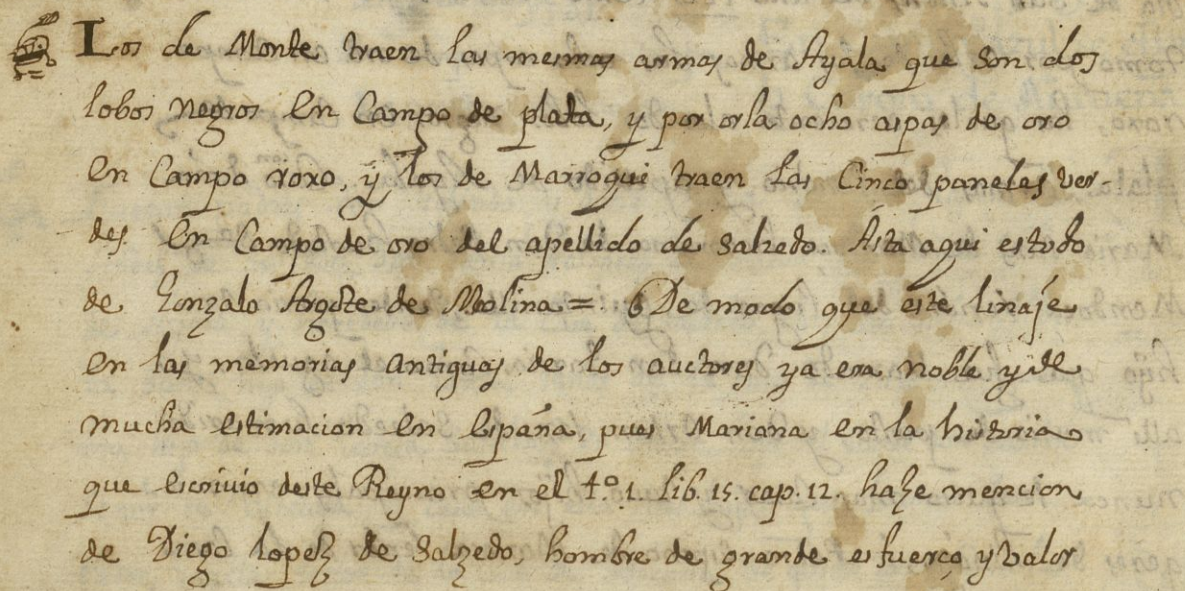 Los de Monte traen las mesmas armas de Ayala que son dos
lobos negros en Campo de plata, y por orla ocho aspas de oro
en Campo roxo, y los de Marroqui traen las Cinco panelas ver-
des en Campo de oro del apellido de Salzedo. Asta aqui es todo
de Gonzalo Argote de Molina = De modo que este linaje
en las memorias antiguas de los auctores ya era noble y de
mucha estimacion en españa, pues Mariana en la historia
que escriuio deste Reyno en el tº. 1. lib. 15. cap. 12. haze mencion
de Diego lopez de Salzedo, hombre de grande esfuerço y valor